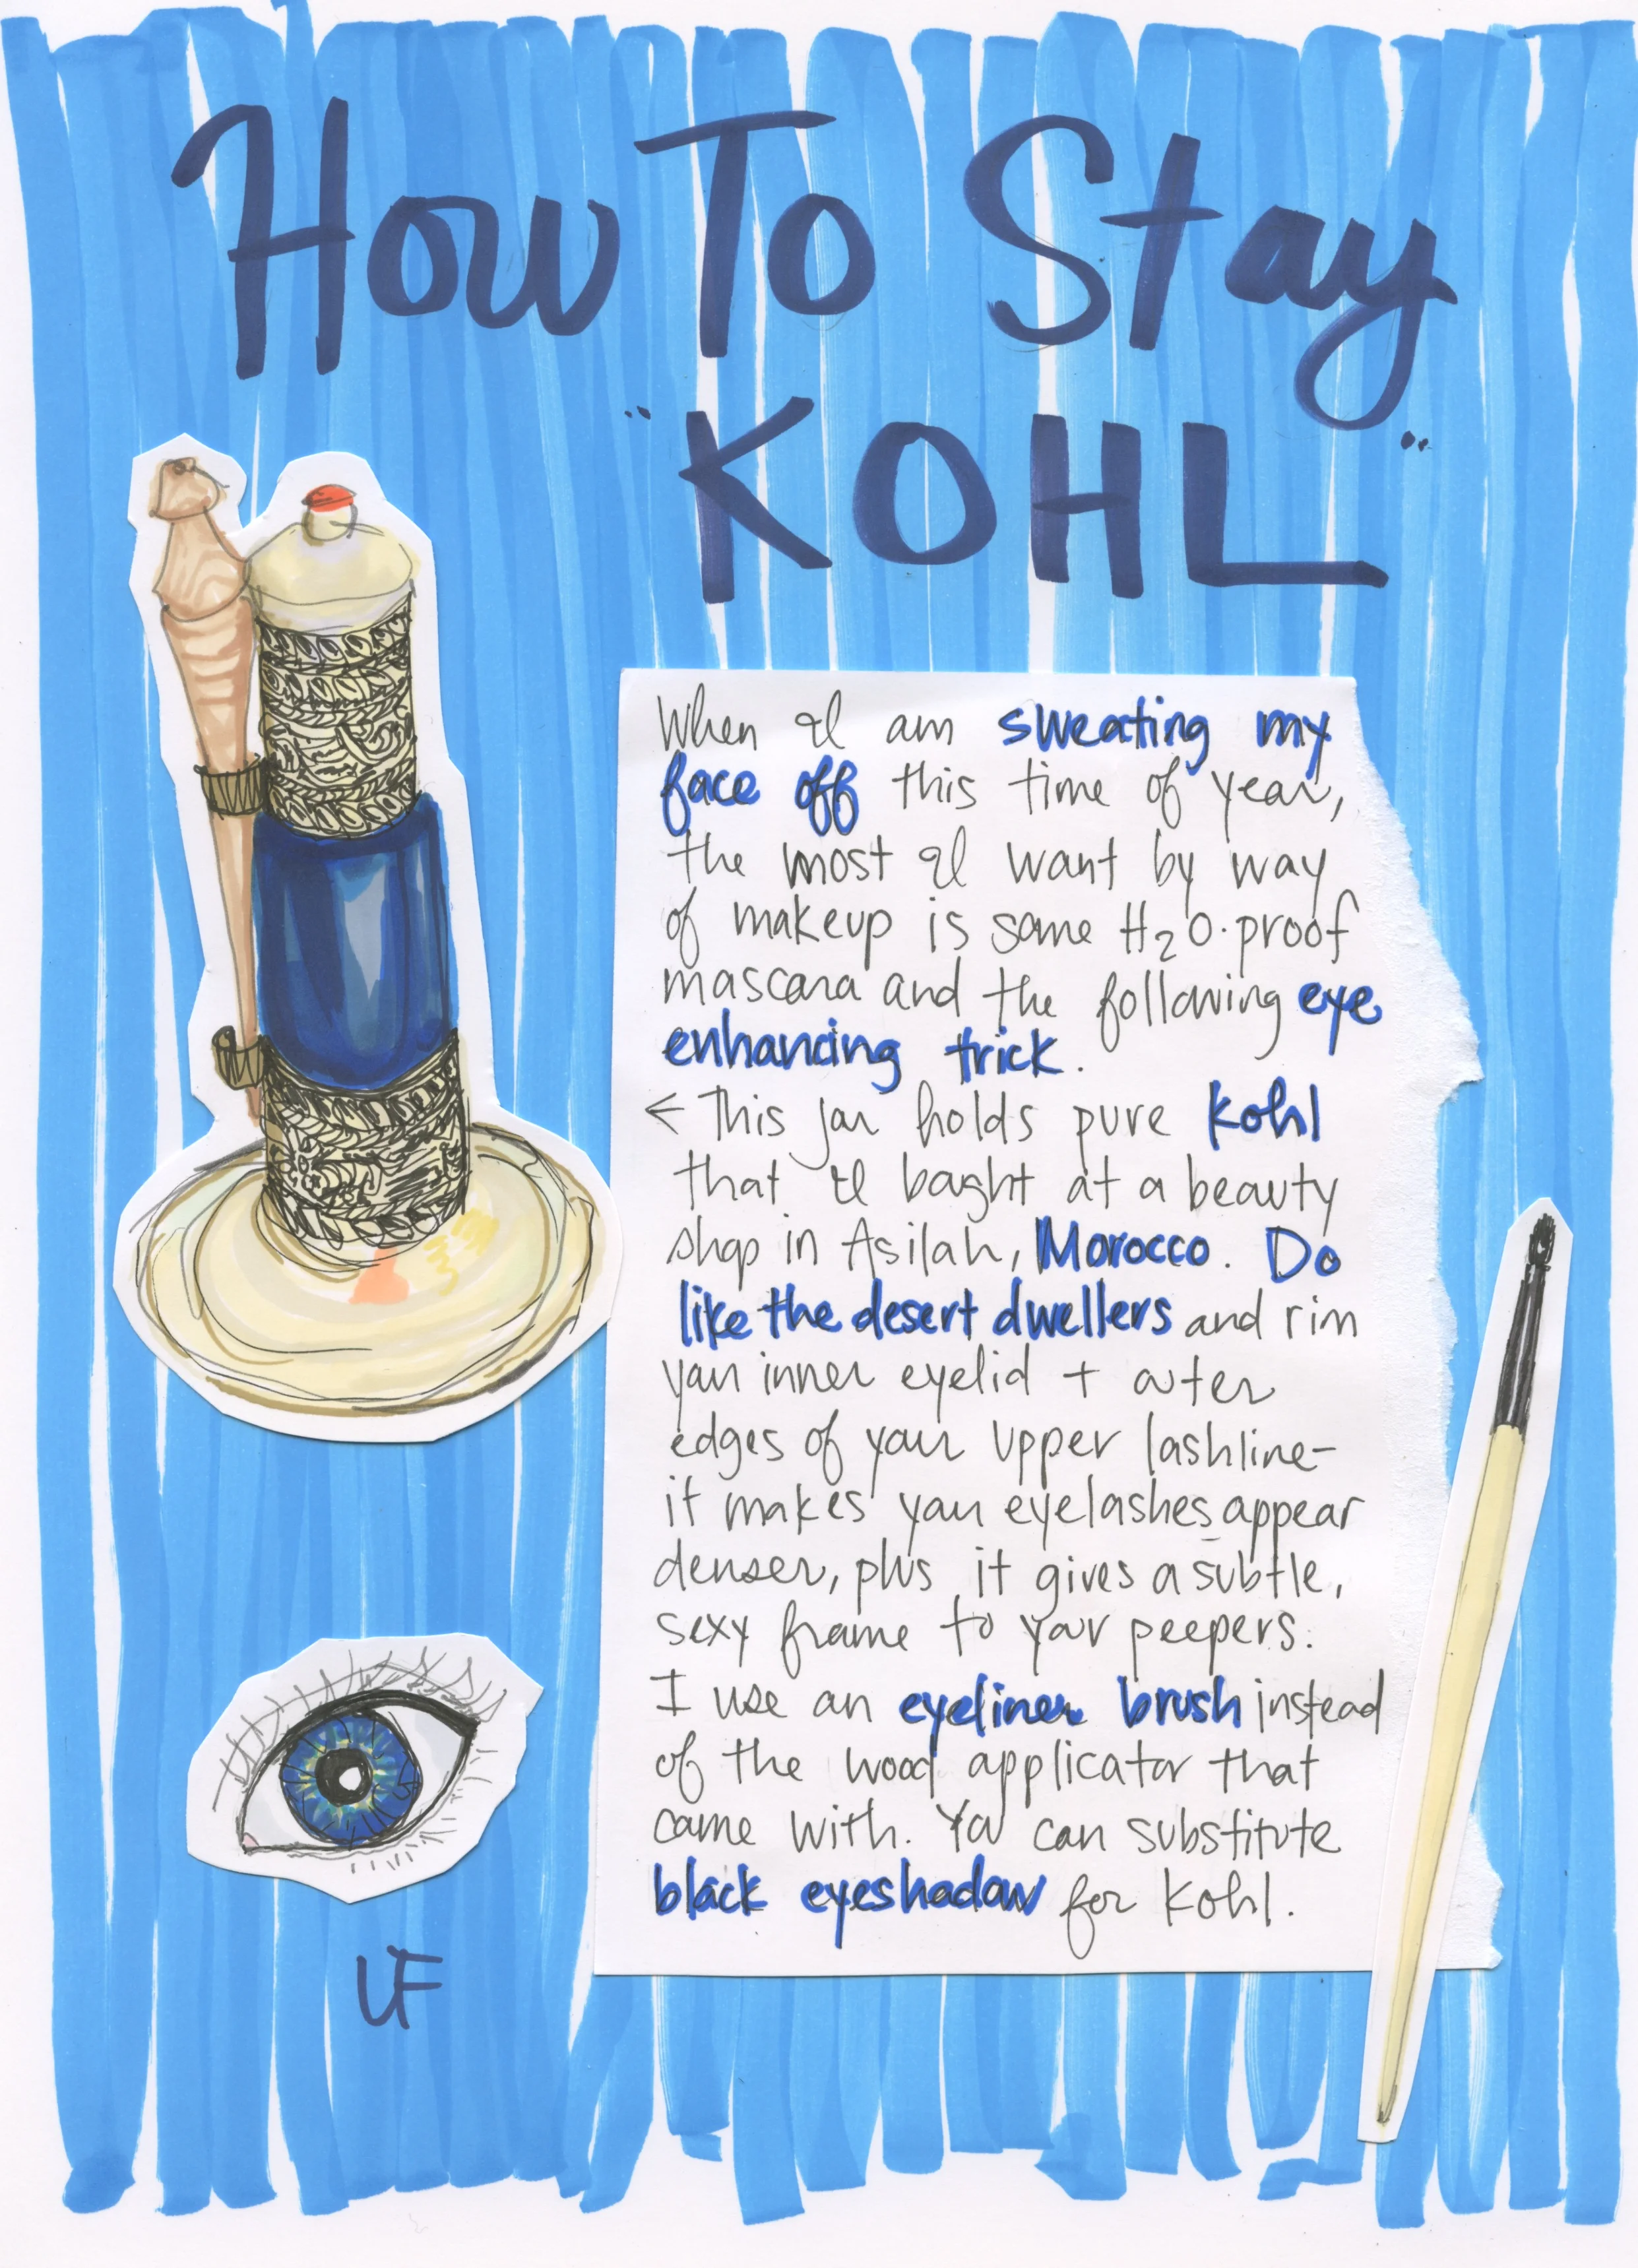 How To Stay
"KOHL"
When I am sweating my
face off this time of year,
the most I want by way
of makeup is some H₂O-proof
mascara and the following eye
enhancing trick.
← This jar holds pure kohl
that I bought at a beauty
shop in Asilah, Morocco. Do
like the desert dwellers and rim
your inner eyelid + outer
edges of your upper lashline-
it makes your eyelashes appear
denser, plus it gives a subtle,
sexy frame to your peepers.
I use an eyeliner brush instead
of the wood applicator that
came with. You can substitute
black eyeshadow for kohl.